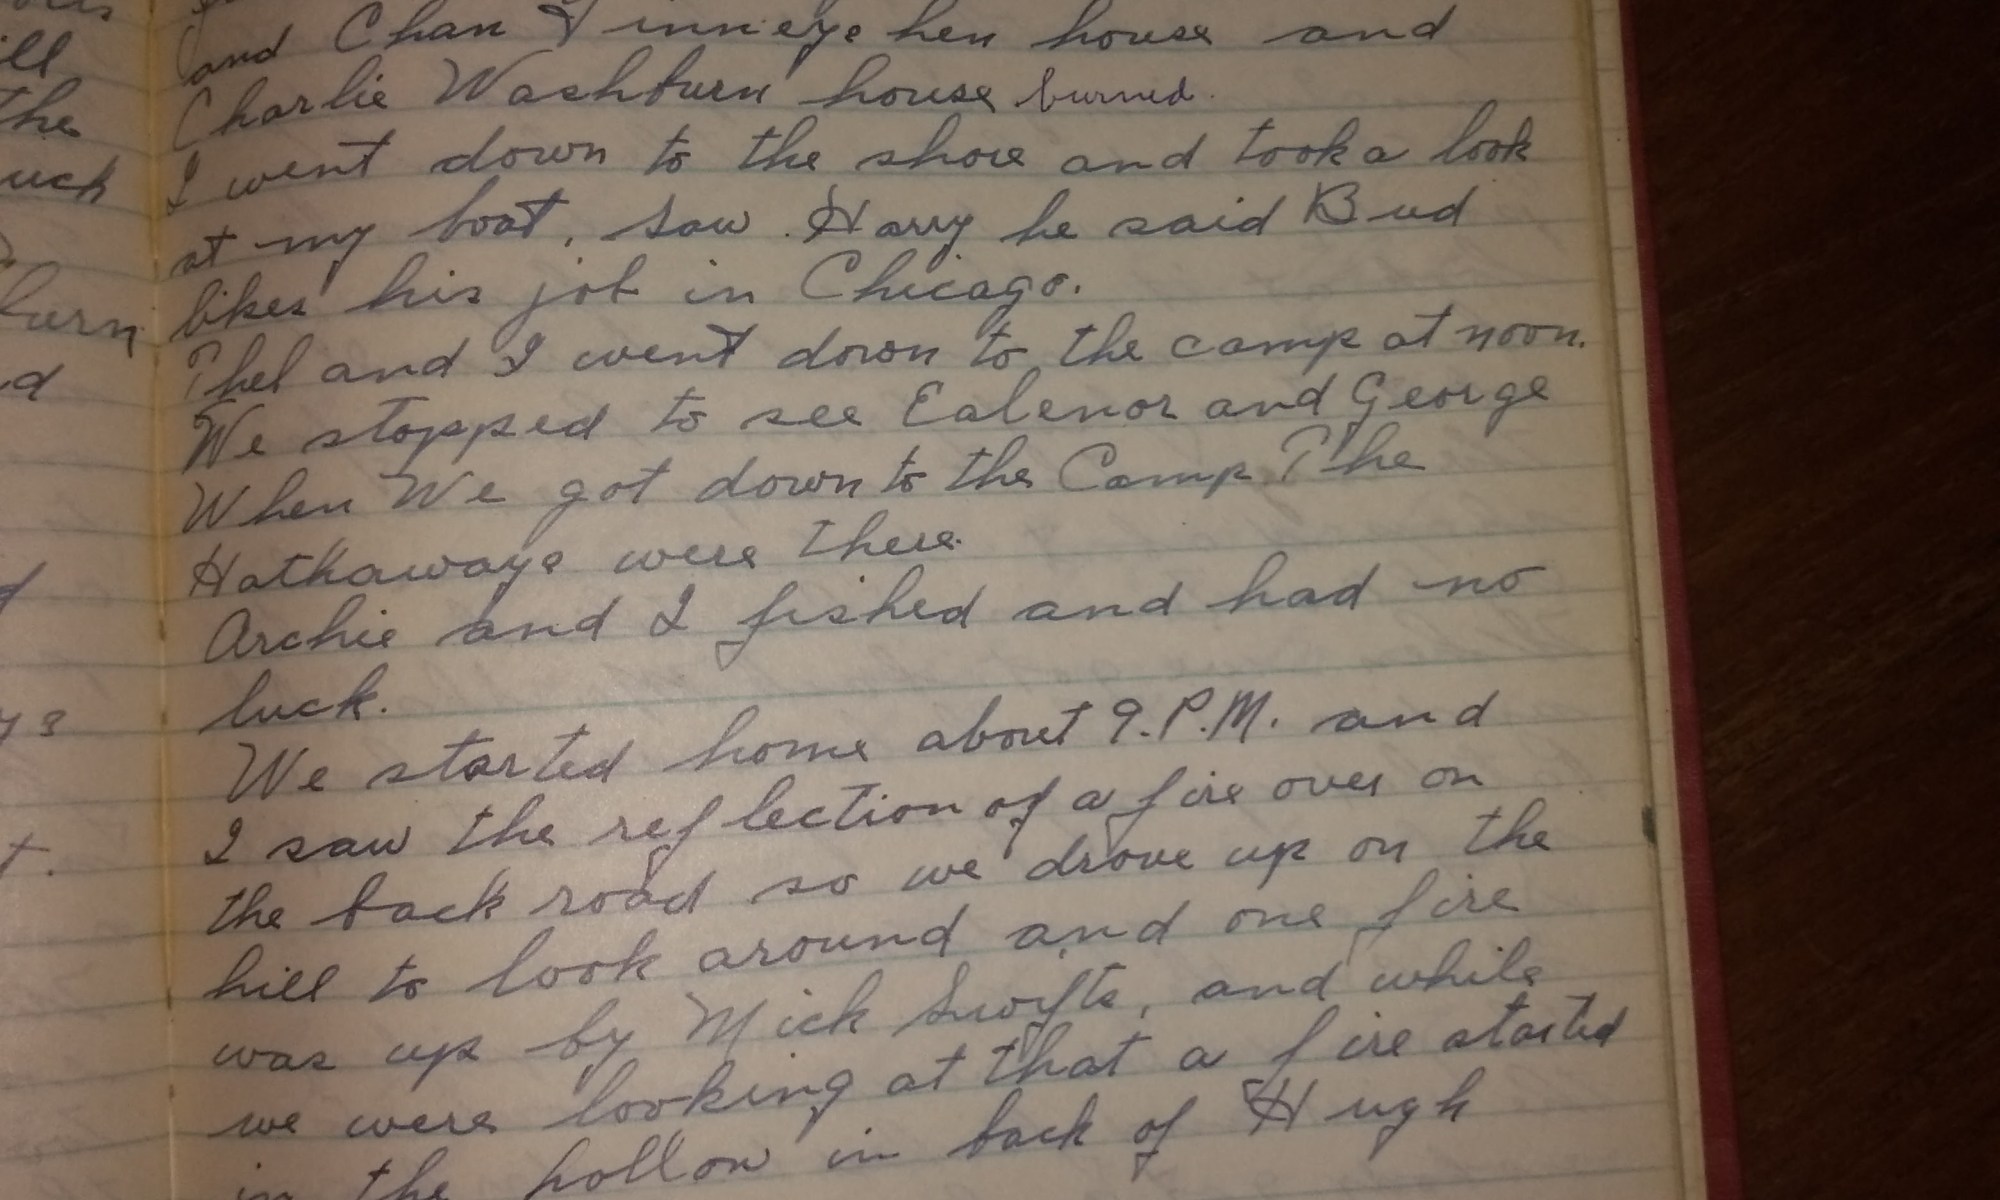 ill
the
uck
burn
d
ys
t.
and Chan Finneye hen house and
Charlie Washburn house burned.
I went down to the shore and took a look
at my boat, saw Harry he said Bud
likes his job in Chicago.
Thel and I went down to the camp at noon.
We stopped to see Ealenor and George
When We got down to the Camp The
Hathaways were there.
Archie and I fished and had no
luck.
We started home about 9.P.M. and
I saw the reflection of a fire over on
the back road so we drove up on the
hill to look around and one fire
was up by Mick Swifts, and while
we were looking at that a fire started
in the hollow in back of Hugh